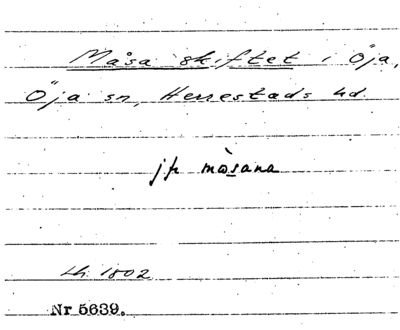 Måsa skiftet i Öja,
Öja sn, Herrestads hd.
jfr mòsana
Lh. 1802
Nr 5639.